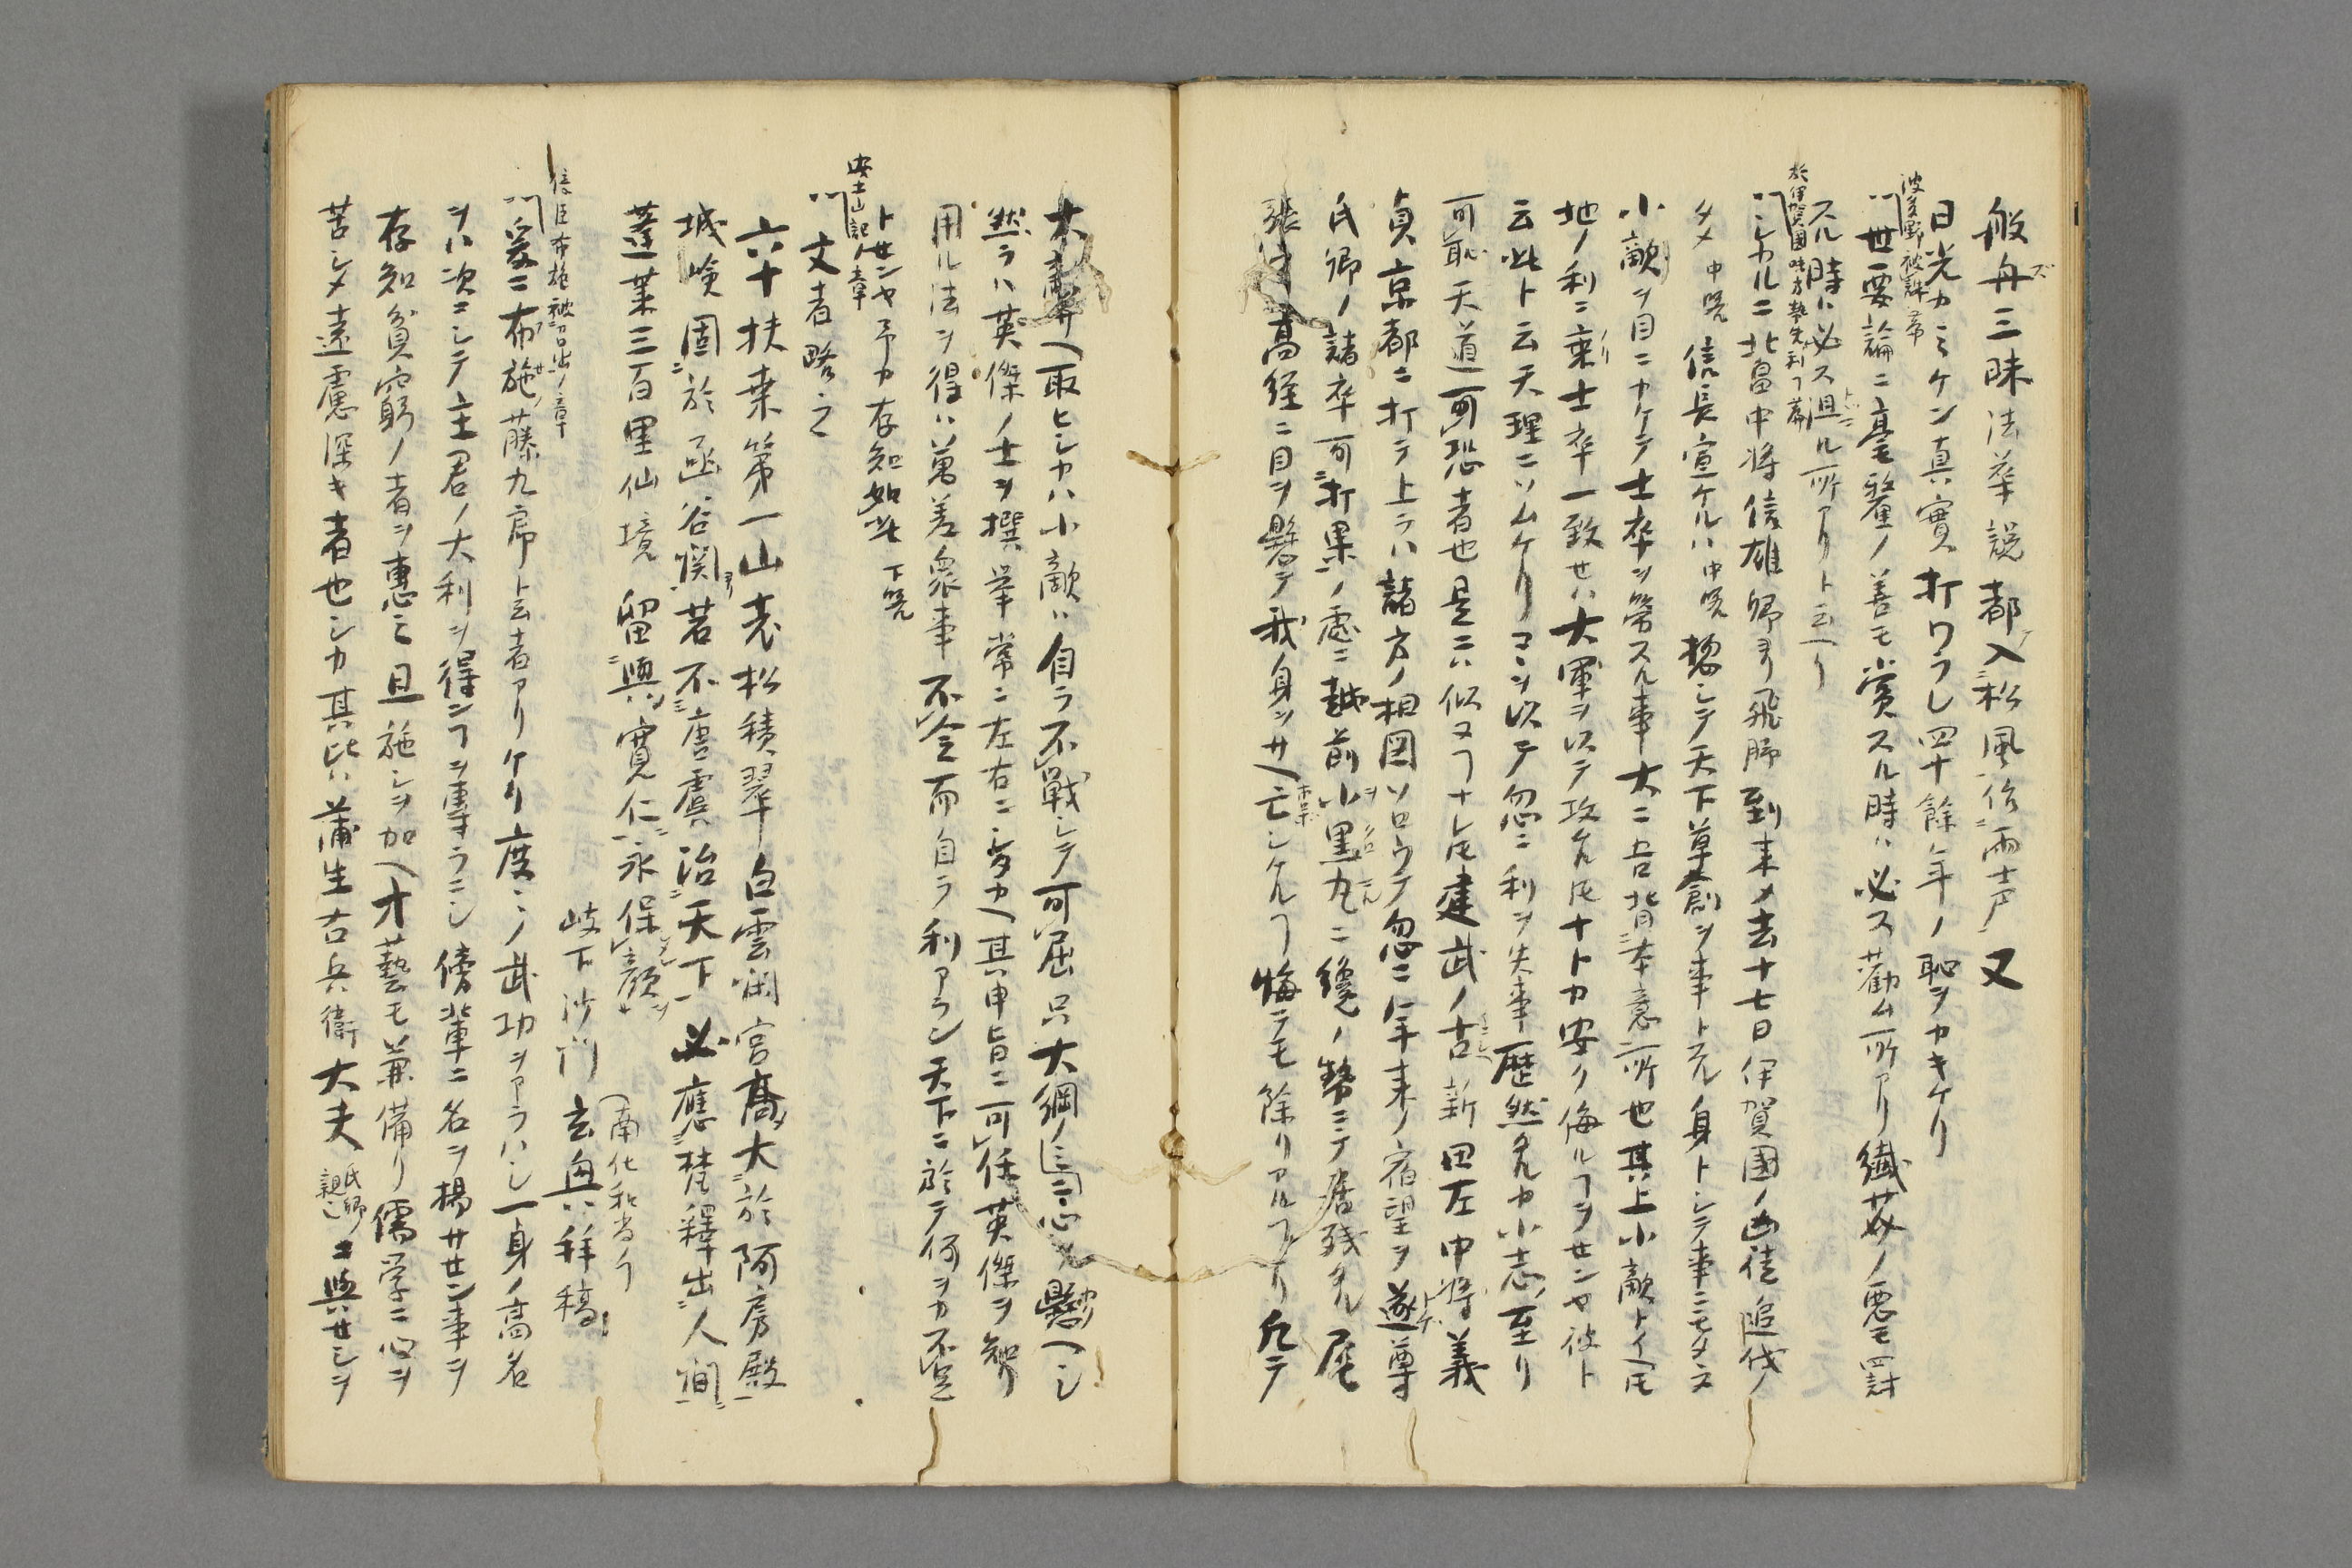 般舟三昧法華説都入松風夜雨声又
日光カミケン真實打ワラレ四十餘年ノ恥ヲカキケリ
波多野被誅篇
世要論ニ毫釐ノ善モ賞スル時ハ必ス勸ム所アリ纎芥ノ悪モ罰
スル時ハ必ス沮ル所アリト云ヘリ
於伊賀國味方勢失利フ篇
シカルニ北畠中将信雄卿ヨリ飛脚到来メ去十七日伊賀國ノ凶徒追伐ノ
タメ 中畧 信長宣ケルハ中畧 惣シテ天下草創ノ事トスル身トシテ事ニモタヌ
小敵ヲ目ニカケテ士卒ヲ労スル事大ニ吾背本意所也其上小敵トイヘトモ
地ノ利ニ乗リ士卒一致セハ大軍ヲ以テ攻ルトモナトカ安ク侮ルフヲセンヤ彼ト
云此ト云天理ニソムケリコヽヲ以テ忽ニ利ヲ失事歴然タルカ小志ノ至リ
可恥天道可恐者也是ニハ似ヌフナレトモ建武ノ古新田左中将義
貞京都ニ打テ上ラハ諸方ノ相図ソロウテ忽ニ年来ノ宿望ヲ遂尊
氏卿ノ諸卒可打果ノ處ニ越前小黒丸ニ纔ノ勢ニテ居残タル尾
張守高経ニ目ヲ懸テ我身ヲサヘ亡シケルフ悔テモ餘リアルフナリ凡テ
大敵ヘ取ヒシカハ小敵ハ自ラ不戦シテ可屈只大綱ノ心ヲ懸ヘシ
然ラハ英傑ノ士ヲ撰挙常ニ左右ニ多カヘ其申旨ニ可任英傑ヲ知リ
用ル法ヲ得ハ萬差衆事不令而自ラ利アラン天下ニ於テ何ヲカ不足
トセンヤ予カ存知如此 下畧
安土山記ノ章
文者略之
六十扶桒第一山老松積翠白雲閑宮高大於阿房殿
城嶮固於函谷関若不唐虞治天下必應梵釋出人間
蓬莱三百里仙境留與寛仁永保顔
岐下沙門 玄興拝稿
南化和尚フ
信臣布施被召出ノ章
爰ニ布施藤九郎ト云者アリケリ度ゝノ武功ヲアラハシ一身ノ高名
ヲハ次ニシテ主君ノ大利ヲ得ンフヲ専ラニシ傍輩ニ名ヲ揚サセン事ヲ
存知貧窮ノ者ヲ恵ミ且施シヲ加ヘ才藝モ兼備リ儒学ニ心ヲ
苦シメ遠慮深キ者也シカ其比ハ蒲生右兵衛大夫氏郷親ニ與セシヲ